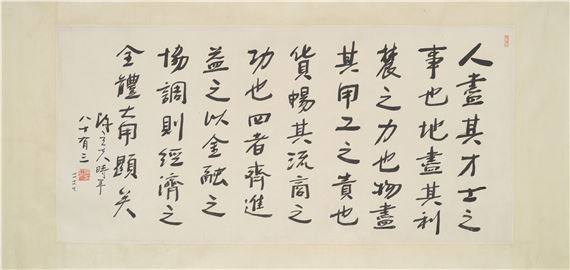 人盡其才士之
事也地盡其利
農之力也物盡
其用工之責也
貨暢其流商之
功也四者齊進
益之以金融之
協調則經濟之
全體大用顯矣
陳立夫時年
八十有三